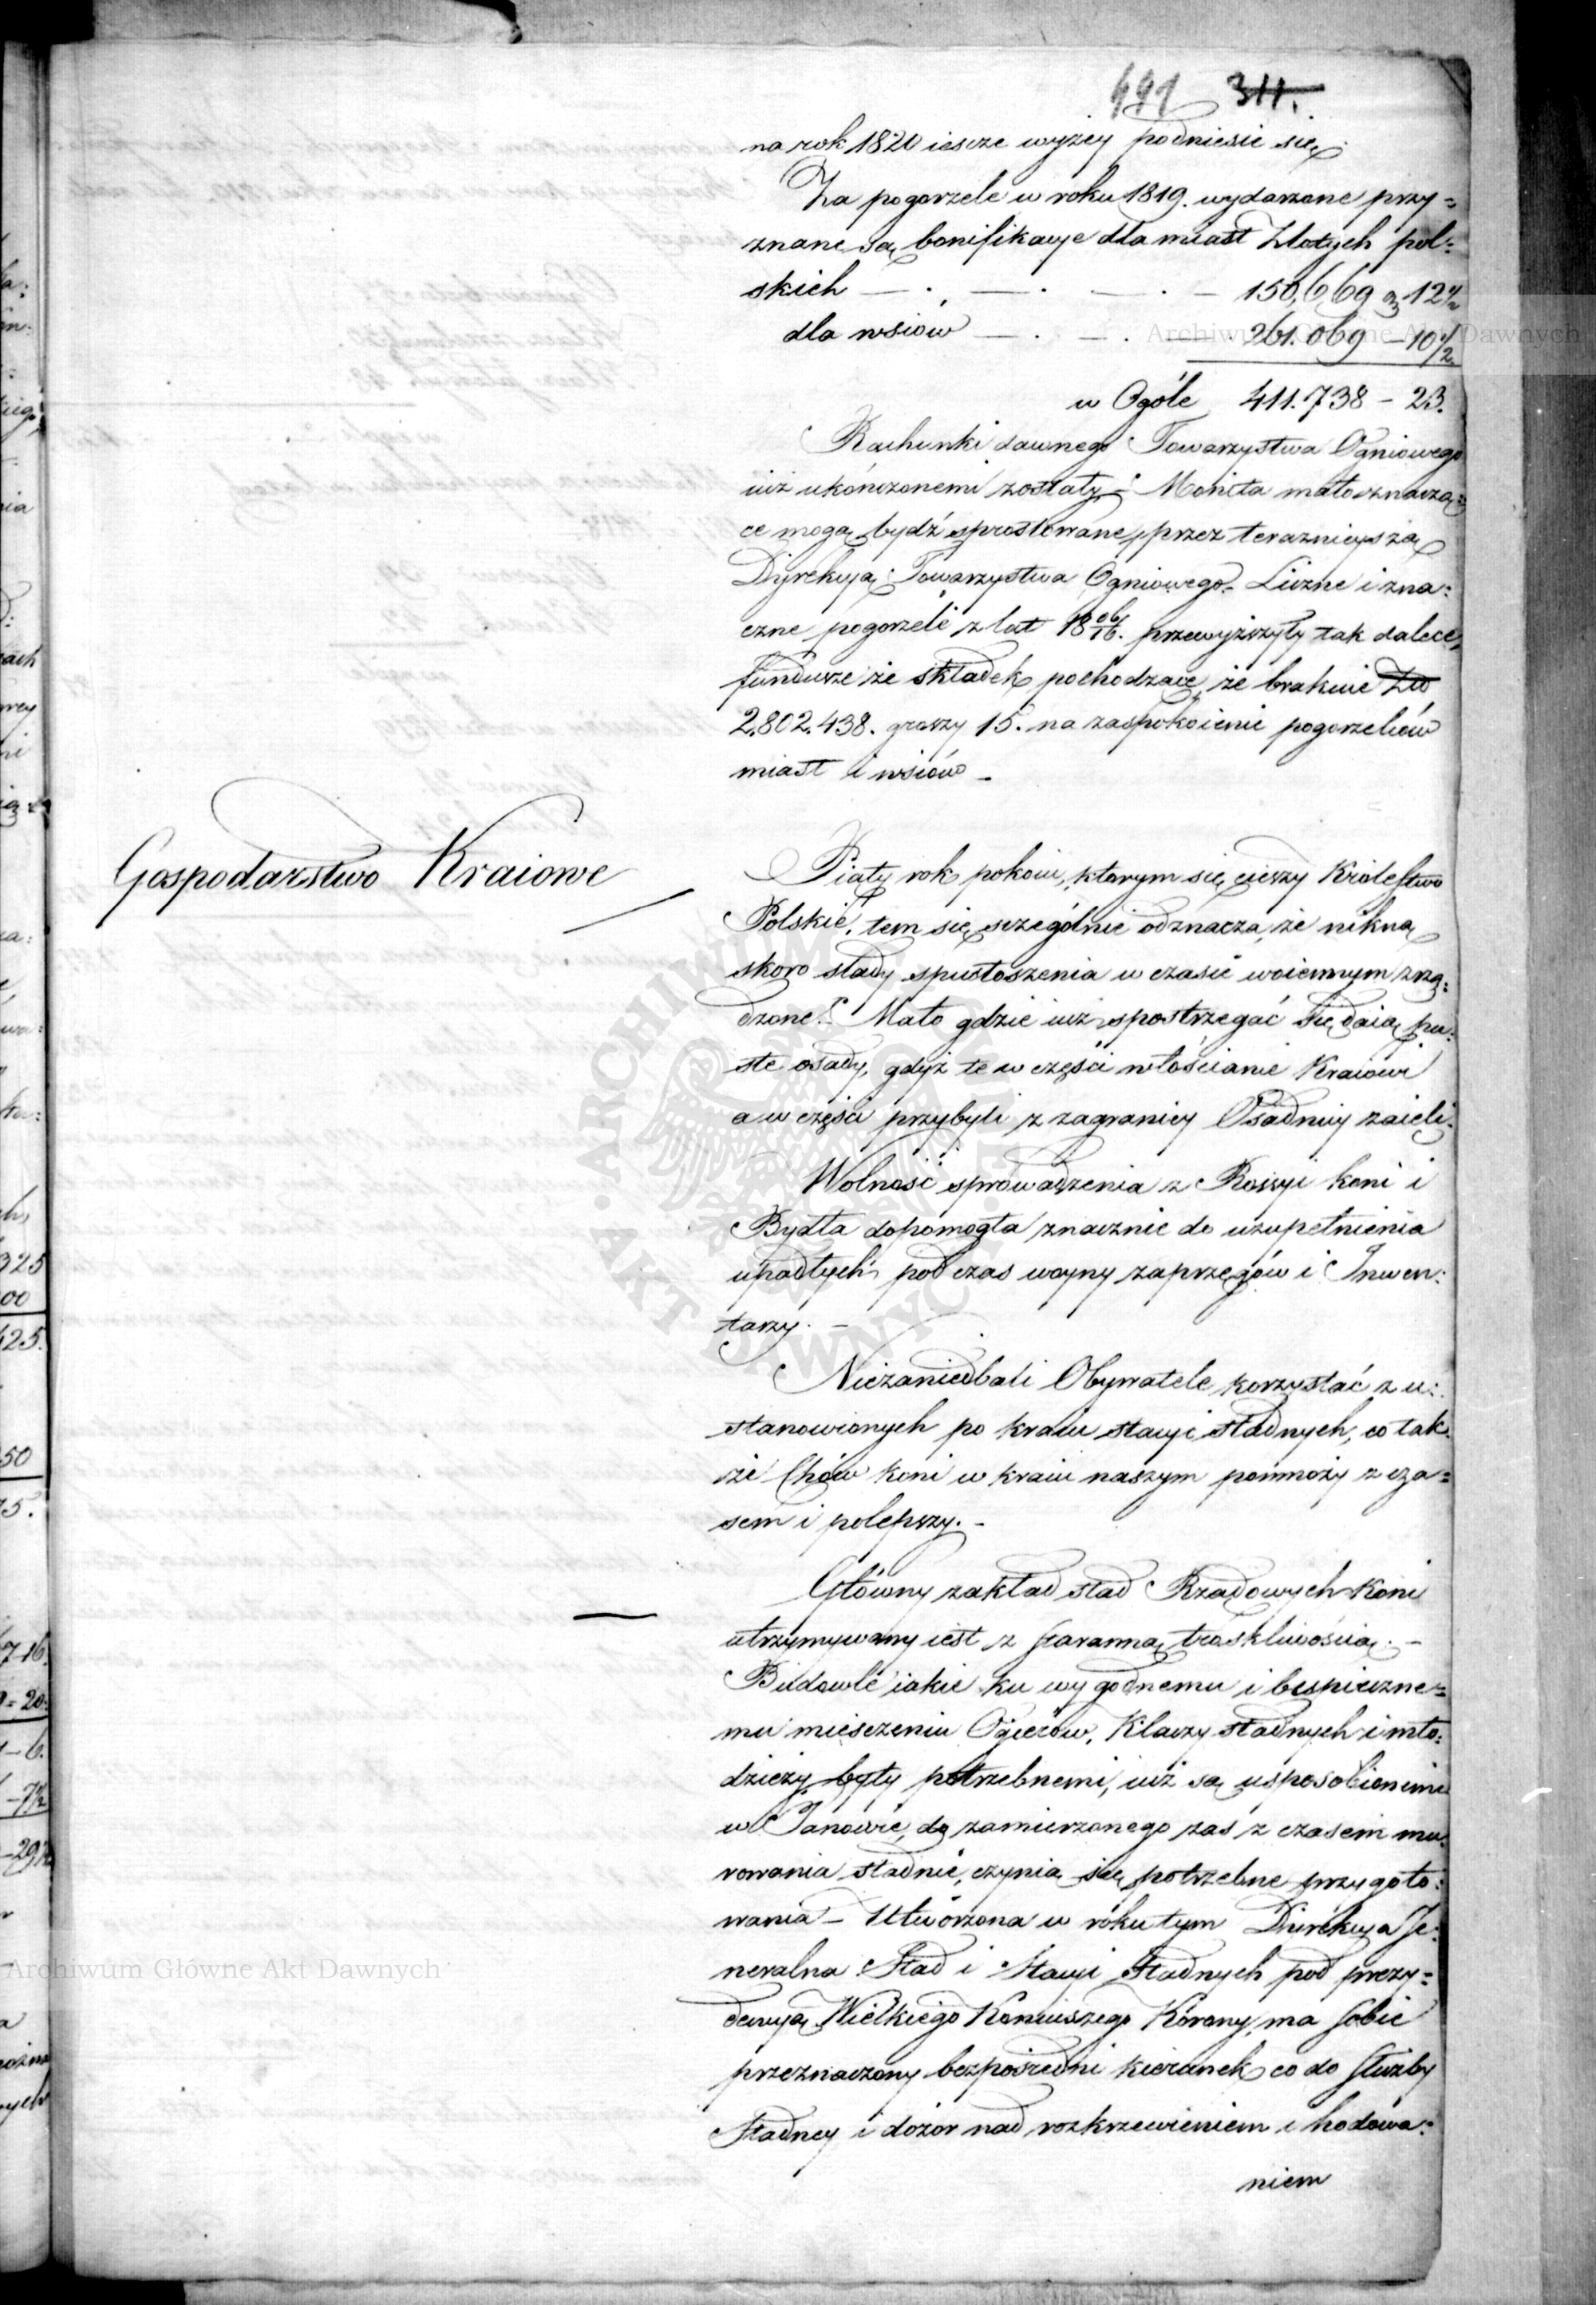 491 311.
na rok 1820 iescze wyżey podniesie się.
Za pogorzele w roku 1819. wydarzone przy=
znane są bonifikacye dla miast Złotych pol=
skich — . — . — . — 150,669 gr 12 1/2
dla wsiów — . — . — 261.069 — 10 1/2
w Ogóle 411.738 — 23.
Rachunki dawnego Towarzystwa Ogniowego
iuż ukończonemi zostały — Monita małoznaczą=
ce mogą bydź sprostowane, przez teraznieyszą
Dyrekcyą Towarzystwa Ogniowego. Liczne i zna=
czne pogorzeli z lat 18 06/16. przewyższyły tak dalece,
fundusze że składek pochodzące, że brakuie Zło
2.802.438. groszy 15. na zaspokoienie pogorzelców
miast i wsiów —
Gospodarstwo Kraiowe
Piąty rok pokoiu, którym się cieszy Królestwo
Polskie, tem się szczególnie odznacza, że nikną
skoro slady spustoszenia w czasie woiennym zrzą=
dzone. Mało gdzie iuż spostrzegać się daią pu=
ste osady, gdyż te w części włościanie Kraiowi
a w części przybyli z zagranicy Osadnicy zaieli.
Wolność sprowadzenia z Rossyi koni i
Bydła dopomogła znacznie do uzupełnienia
upadłych podczas woyny zaprzęgów i Inwen=
tarzy. —
Niezaniedbali Obywatele korzystać z u=
stanowionych po kraiu stacyi stadnych, co tak=
że Chów koni w kraiu naszym pomnoży z cza=
sem i polepszy. —
Główny zakład stad Rządowych Koni
utrzymywany iest z staranną troskliwością. —
Budowle iakie ku wygodnemu i bespieczne=
mu miesczeniu Ogierów, Klaczy stadnych i mło=
dzieży były potrzebnemi, iuż są usposobionemi
w Janowie, do zamierzonego zaś z czasem mu=
rowania stadnie, czynią się potrzebne przygoto=
wania — Utworzona w roku tym Dyrekcya Je=
neralna Stad i Stacyi Stadnych pod prezy=
dencyą Wielkiego Koniuszego Korony, ma sobie
przeznaczony bezpośredni kierunek co do służby
Stadney i dozor nad rozkrzewieniem i hodowa=
niem
325
00
425.
50
75.
Archiwum Główne Akt Dawnych
Archiwum Główne Akt Dawnych
ARCHIWUM GŁÓWNE AKT DAWNYCH